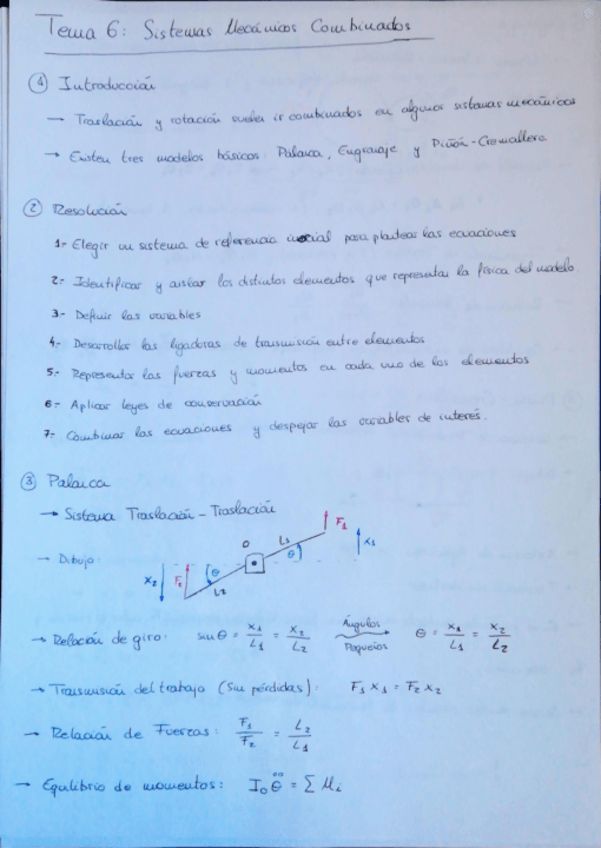 Tema 6: Sistemas Mecánicos Combinados
① Introducción
→ Traslación y rotación suelen ir combinados en algunos sistemas mecánicos
→ Existen tres modelos básicos: Palanca, Engranaje y Piñón-Cremallera
② Resolución
1.- Elegir un sistema de referencia inercial para plantear las ecuaciones
2.- Identificar y aislar los distintos elementos que representan la física del modelo
3.- Definir las variables
4.- Desarrollar las ligaduras de transmisión entre elementos
5.- Representar las fuerzas y momentos en cada uno de los elementos
6.- Aplicar leyes de conservación
7.- Combinar las ecuaciones y despejar las variables de interés.
③ Palanca
→ Sistema Traslación - Traslación
→ Dibujo:
O L₁ F₁ θ x₁
x₂ F₂ θ L₂
→ Relación de giro: sin θ = x₁/L₁ = x₂/L₂ Ángulos Pequeños → θ = x₁/L₁ = x₂/L₂
→ Transmisión del trabajo (Sin pérdidas): F₁ x₁ = F₂ x₂
→ Relación de Fuerzas: F₁/F₂ = L₂/L₁
→ Equilibrio de momentos: I₀ θ̈ = Σ Mᵢ